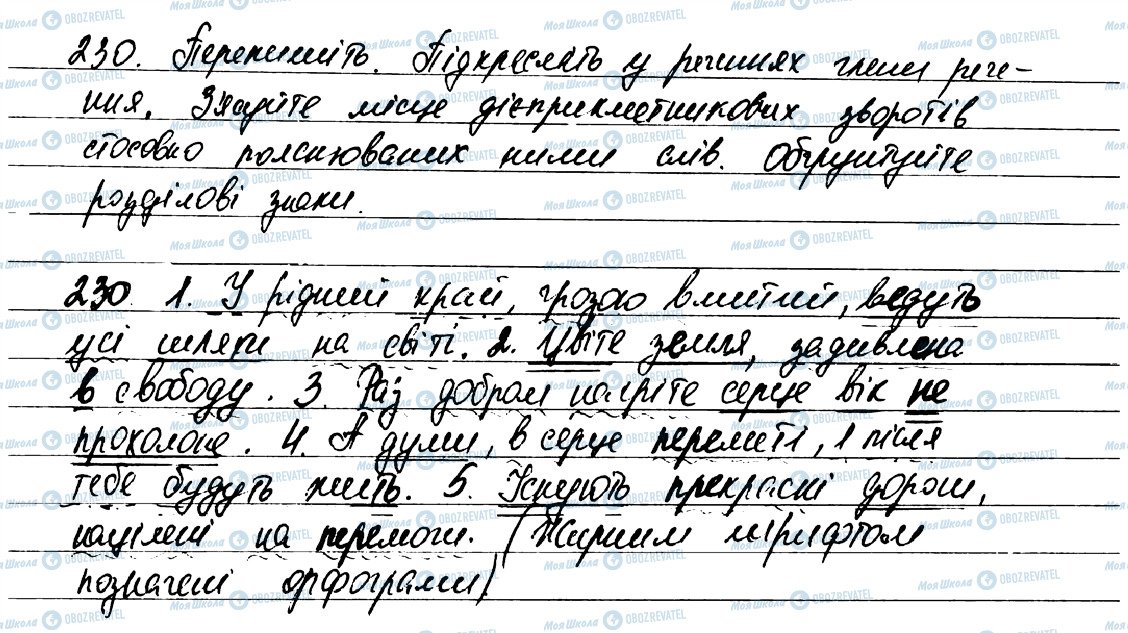 230. Перепишіть. Підкресліть у реченнях члени рече-
ння. З'ясуйте місце дієприкметникових зворотів
стосовно пояснюваних ними слів. Обґрунтуйте
розділові знаки.
230. 1. У рідний край, грозою вмитий, ведуть
усі шляхи на світі. 2. Цвіте земля, задивлена
в свободу. 3. Раз добром нагріте серце вік не
прохолоне. 4. А думи, в серце перелиті, і після
тебе будуть жить. 5. Існують прекрасні дороги,
націлені на перемоги. (Жирним шрифтом
позначені орфограми)